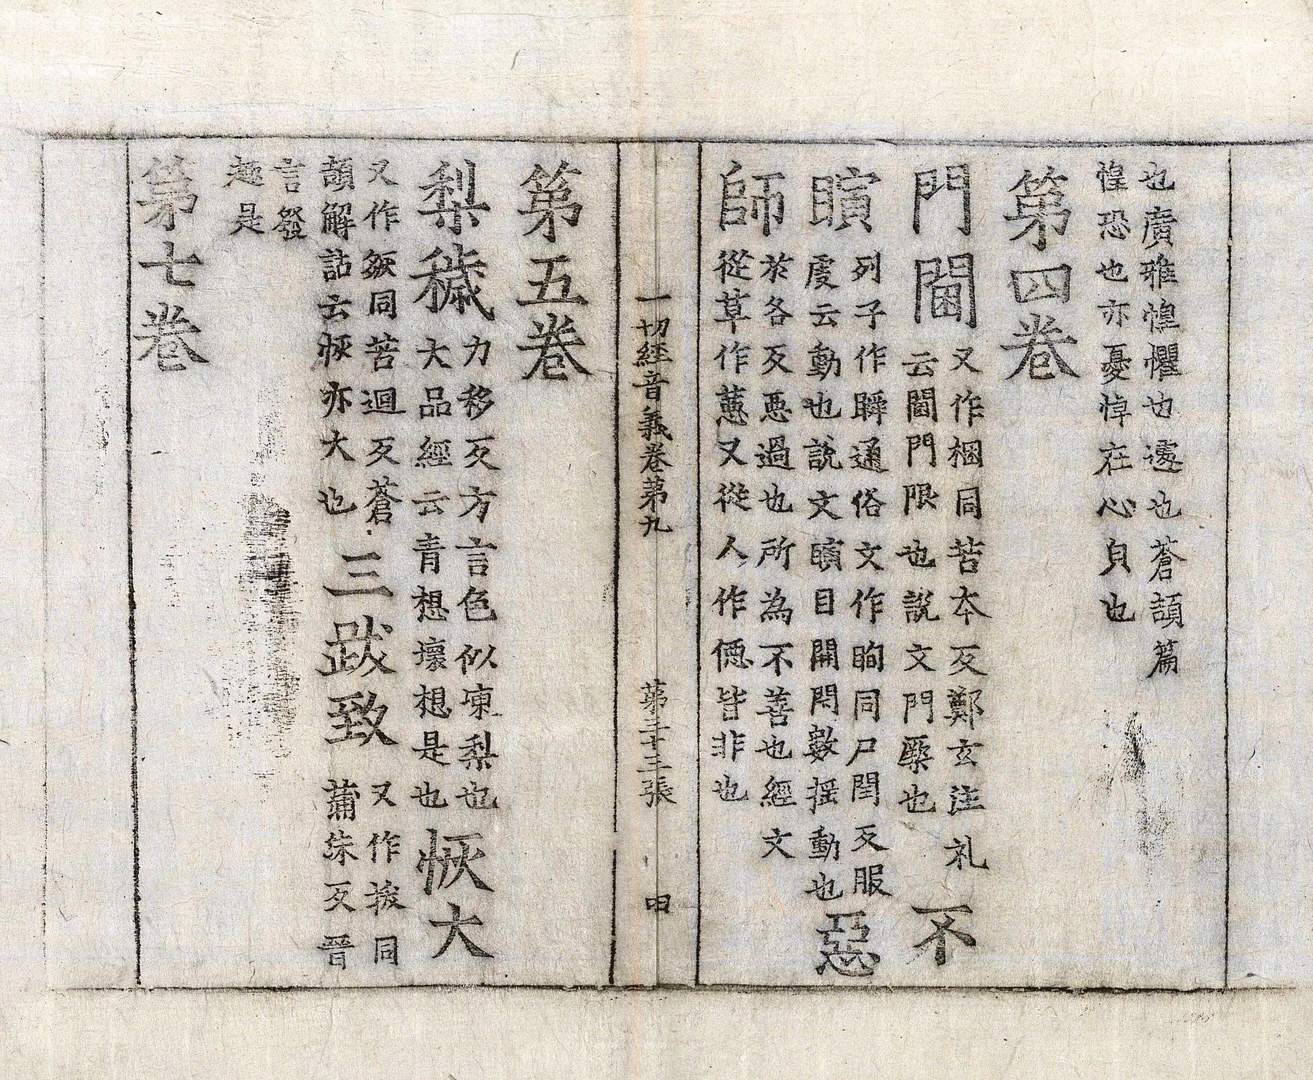 也廣雅惶懼也遽也蒼頡篇
惶恐也亦憂悼在心皃也
第四卷
門閫
又作梱同苦本反鄭玄注礼
云閫門限也說文門橜也
不
瞚
列子作瞬通俗文作眴同尸閏反服
虔云動也說文瞚目開閉數搖動也
惡
師
於各反惡過也所為不善也經文
從草作蕙又從人作僫皆非也
一切經音義卷第九
第三十三張
第五卷
梨穢
力移反方言色似凍梨也
大品經云青想壞想是也
恢大
又作同苦迴反蒼
頡解詁云恢亦大也
三跋致
又作拔同
蒲沬反晉
言發
趣是
第七卷